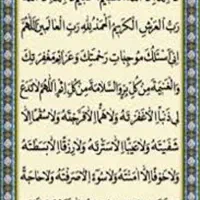 رَبِّ الْعَرْشِ الْكَرِيمِ اَلْحَمْدُ لِلّٰهِ رَبِّ الْعَالَمِينَ اَللّٰهُمَّ
اِنِّى اَسْئَلُكَ مُوجِبَاتِ رَحْمَتِكَ وَعَزَائِمَ مَغْفِرَتِكَ
وَالْغَنِيمَةَ مِنْ كُلِّ بِرٍّ وَالسَّلَامَةَ مِنْ كُلِّ اِثْمٍ اَللّٰهُمَّ لَا تَدَعْ
لِى ذَنْبًا اِلَّا غَفَرْتَهُ وَلَا هَمًّا اِلَّا فَرَّجْتَهُ وَلَا سُقْمًا اِلَّا
شَفَيْتَهُ وَلَا عَيْبًا اِلَّا سَتَرْتَهُ وَلَا رِزْقًا اِلَّا بَسَطْتَهُ
وَلَا خَوْفًا اِلَّا اٰمَنْتَهُ وَلَا سُوءًا اِلَّا صَرَفْتَهُ وَلَا حَاجَةً